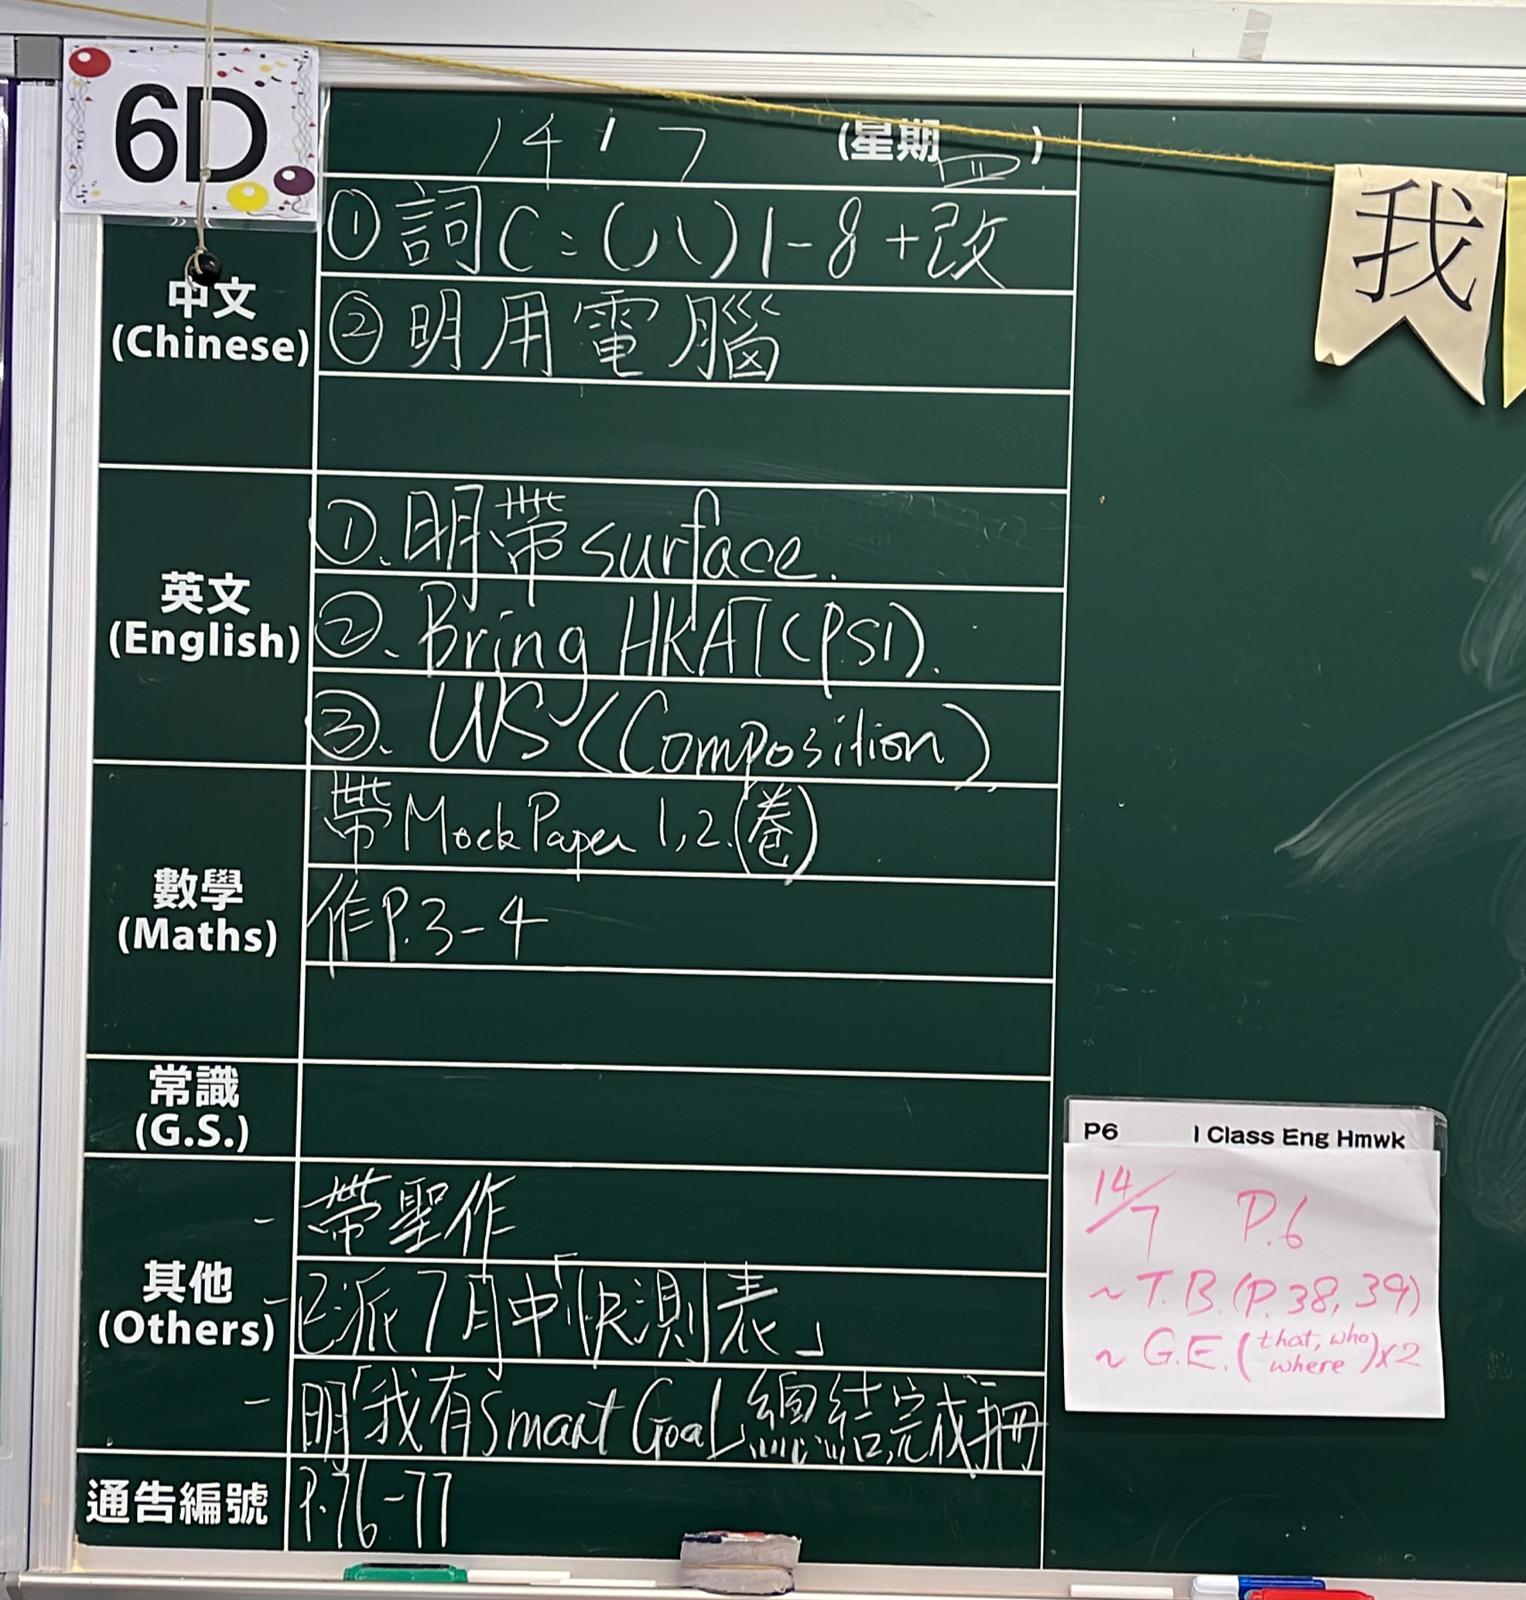 6D
14/7 (星期四)
中文
(Chinese)
① 詞C:(八)1-8+改
② 明用電腦
英文
(English)
①. 明帶surface.
②. Bring HKAT(PS1).
③. WS (Composition)
數學
(Maths)
帶Mock Paper 1,2.(卷)
作P.3-4
常識
(G.S.)
其他
(Others)
- 帶聖作
- 已派7月中「快測表」
- 明「我有Smart Goal總結完成手冊
通告編號
P.76-77
我
P6 I Class Eng Hmwk
14/7 P.6
~ T.B.(P.38, 39)
~ G.E.(that, who where)x2